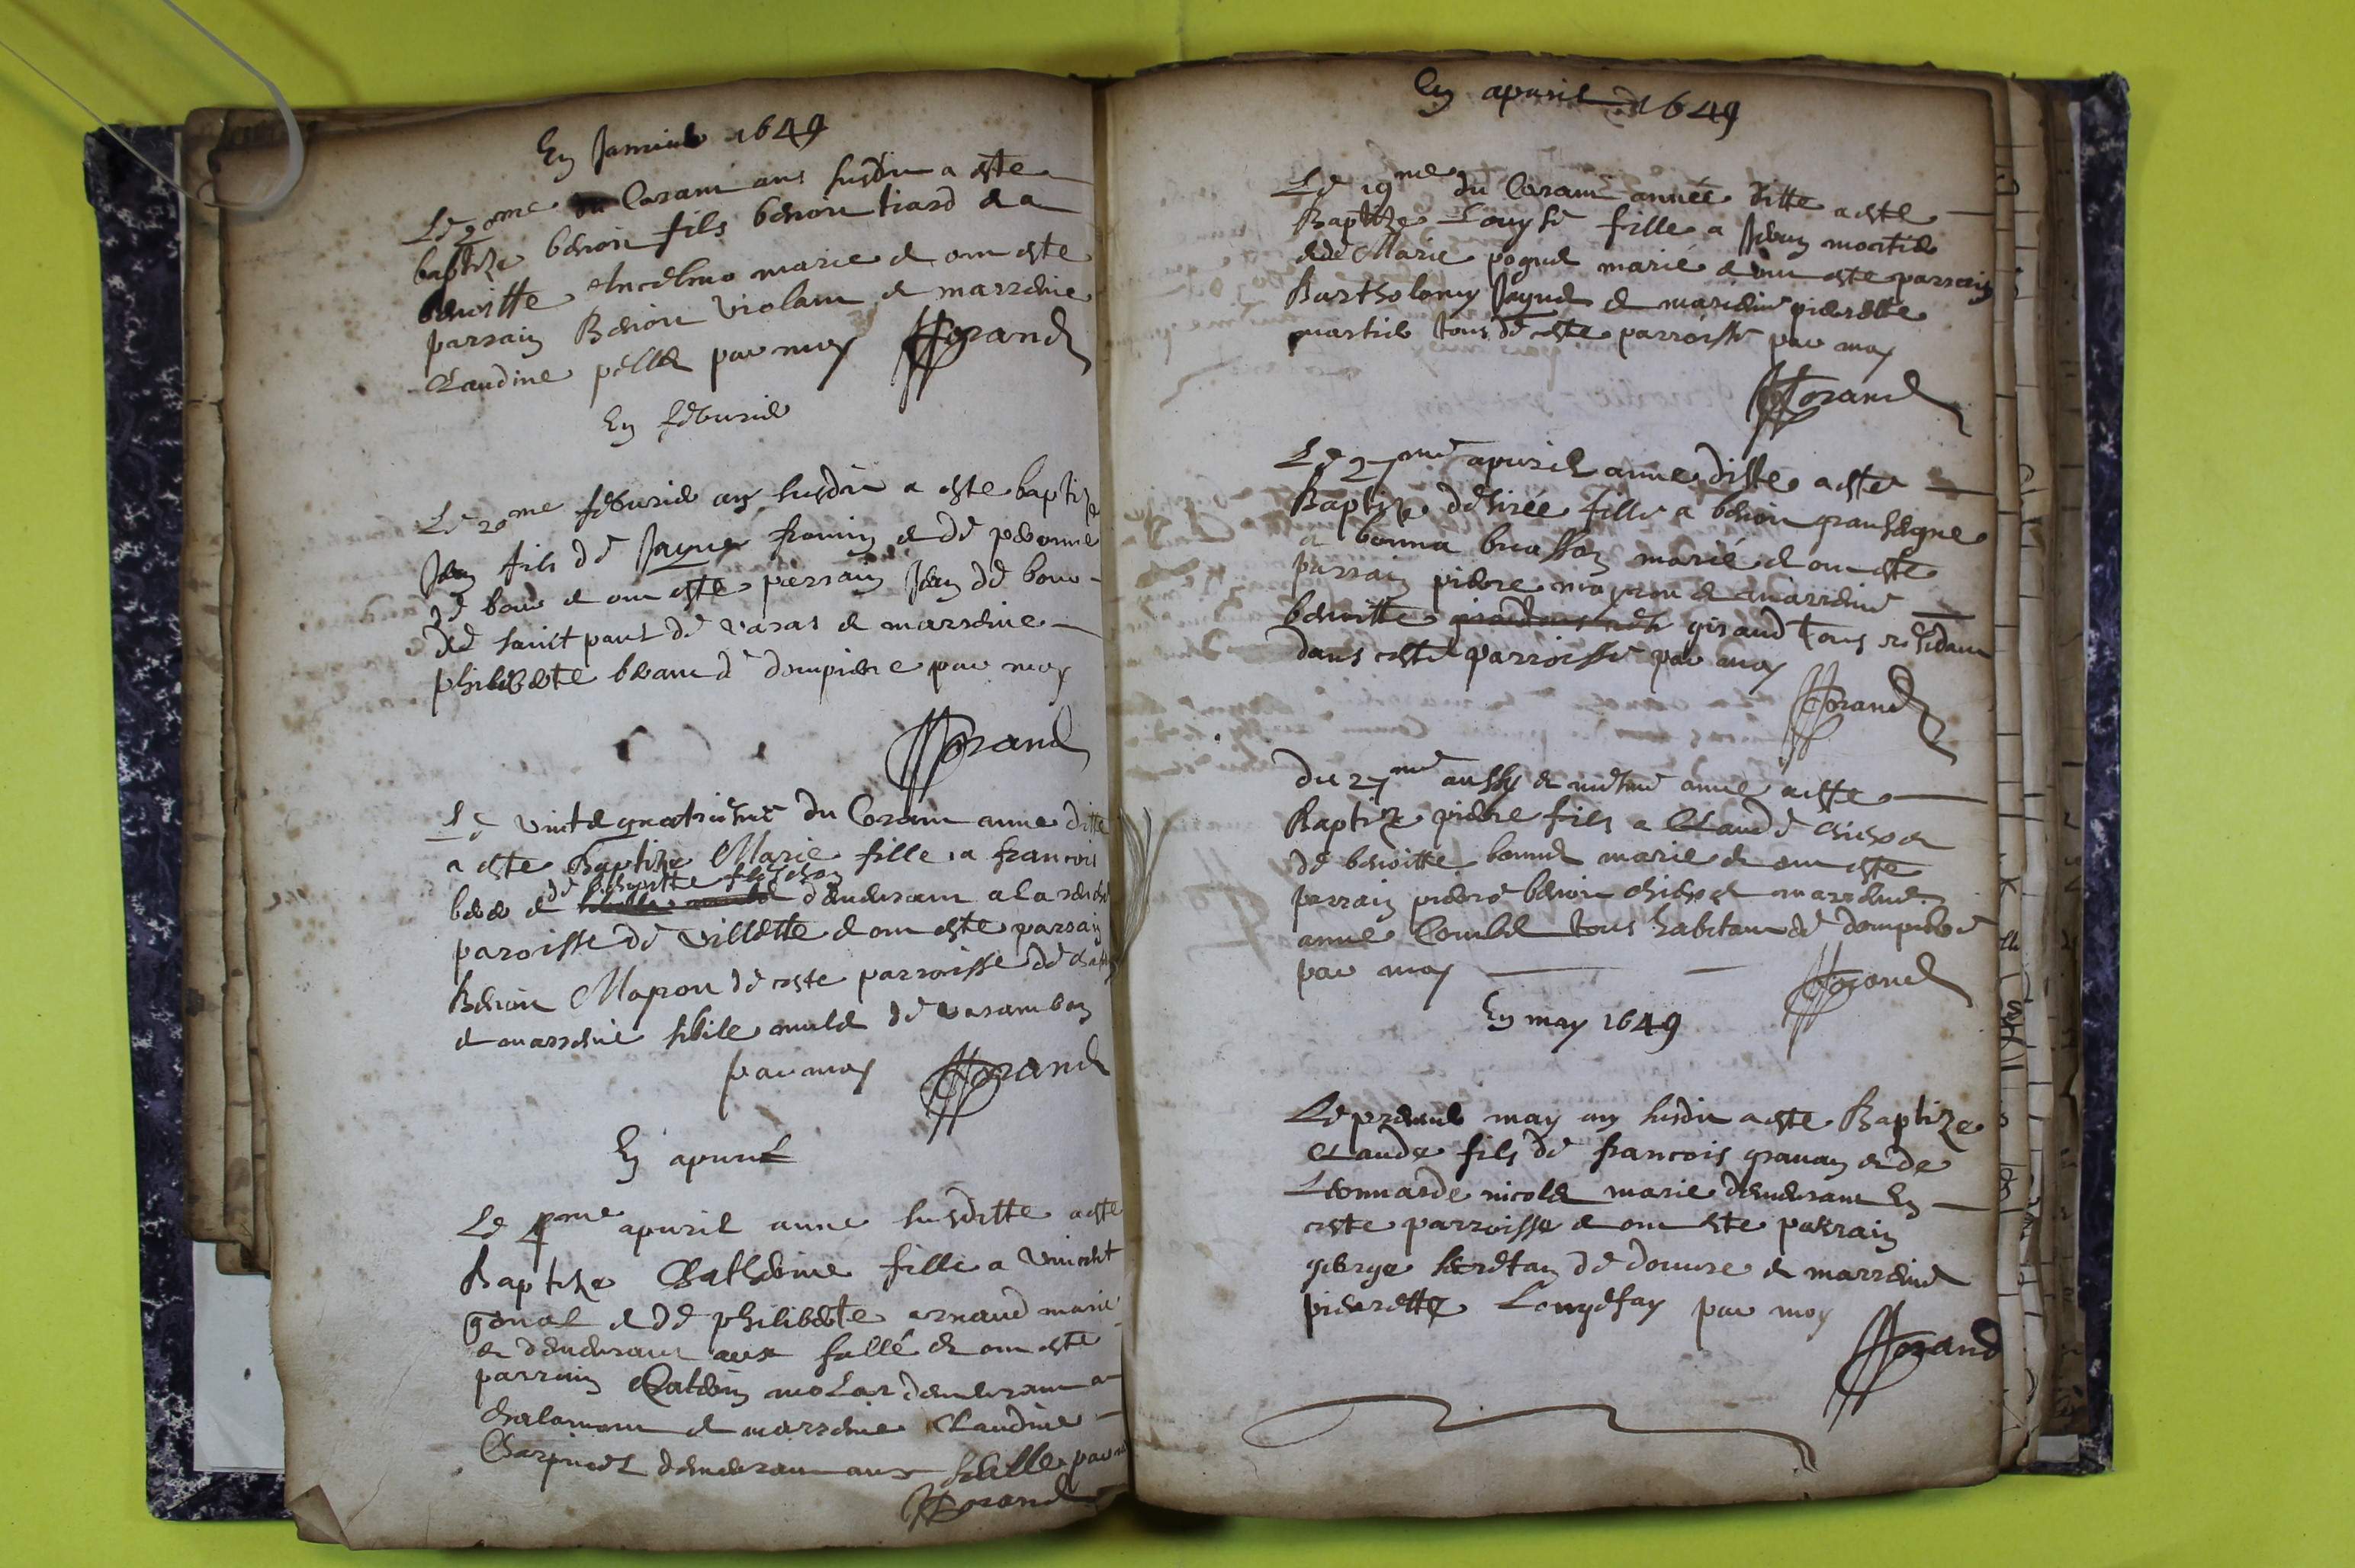 En Januier 1649
Le 2me du Corant ans susdit a este
baptize benoit fils benoit tiard & a
benoitte marie & ont este
parrain Benoit violant & marreine
Claudine pellet par moy Morand
En feburier
Le 20me feburier an susdit a este baptize
Jean fils de Jayme fromin & de peronne
de bour & ont este parrain Jean de bour
de sainct paul de varas & marreine
philiberte de dompierre par moy
Morand
Le vint & quatriesme du Corant anne ditte
a este Baptize Marie fille a francois
de benoitte
& demeurant a la
paroisse de villette & ont este parrain
Benoit Mapon de ceste parroisse de
& marreine sibile de varambon
par moy Morand
En apuril
Le 4me apuril anne susditte a este
Baptize Catherine fille a vincent
& de philiberte arnaud marie
& demeurant aux sallé & ont este
parrain Catherin molar demeurant a
chalamont & marreine Claudine
Charpinel demeurant aux salle par
Morand
En apuril 1649
Le 19me du Corant année ditte a este
Baptize Louyse fille a Jean mortier
& de Marie poguet marié & ont este parrain
Bartholomy Jayme & mareine pierrette
martier tous de ceste parroisse par moy
Morand
Le 27me apuril anne ditte a este
Baptize desirée fille a benoit
a bonna buasson marié & ont este
parrain pierre & marreine
benoitte giraud tous residant
dans ceste parroisse par moy
Morand
du 27me aussy & mesme anne a este
Baptize pierre fils a Claude
de benoitte bonnet marie & ont este
parrain pierre benoit & marreine
anne Combet tous habitant de dompierre
par moy Morand
En may 1649
Le premier may an susdit a este Baptize
Claude fils de francois grauan & de
Leonnarde nicolet marie demeurant En
ceste parroisse & ont este parrain
george de douure & marreine
pierrette Longefay par moy
Morand